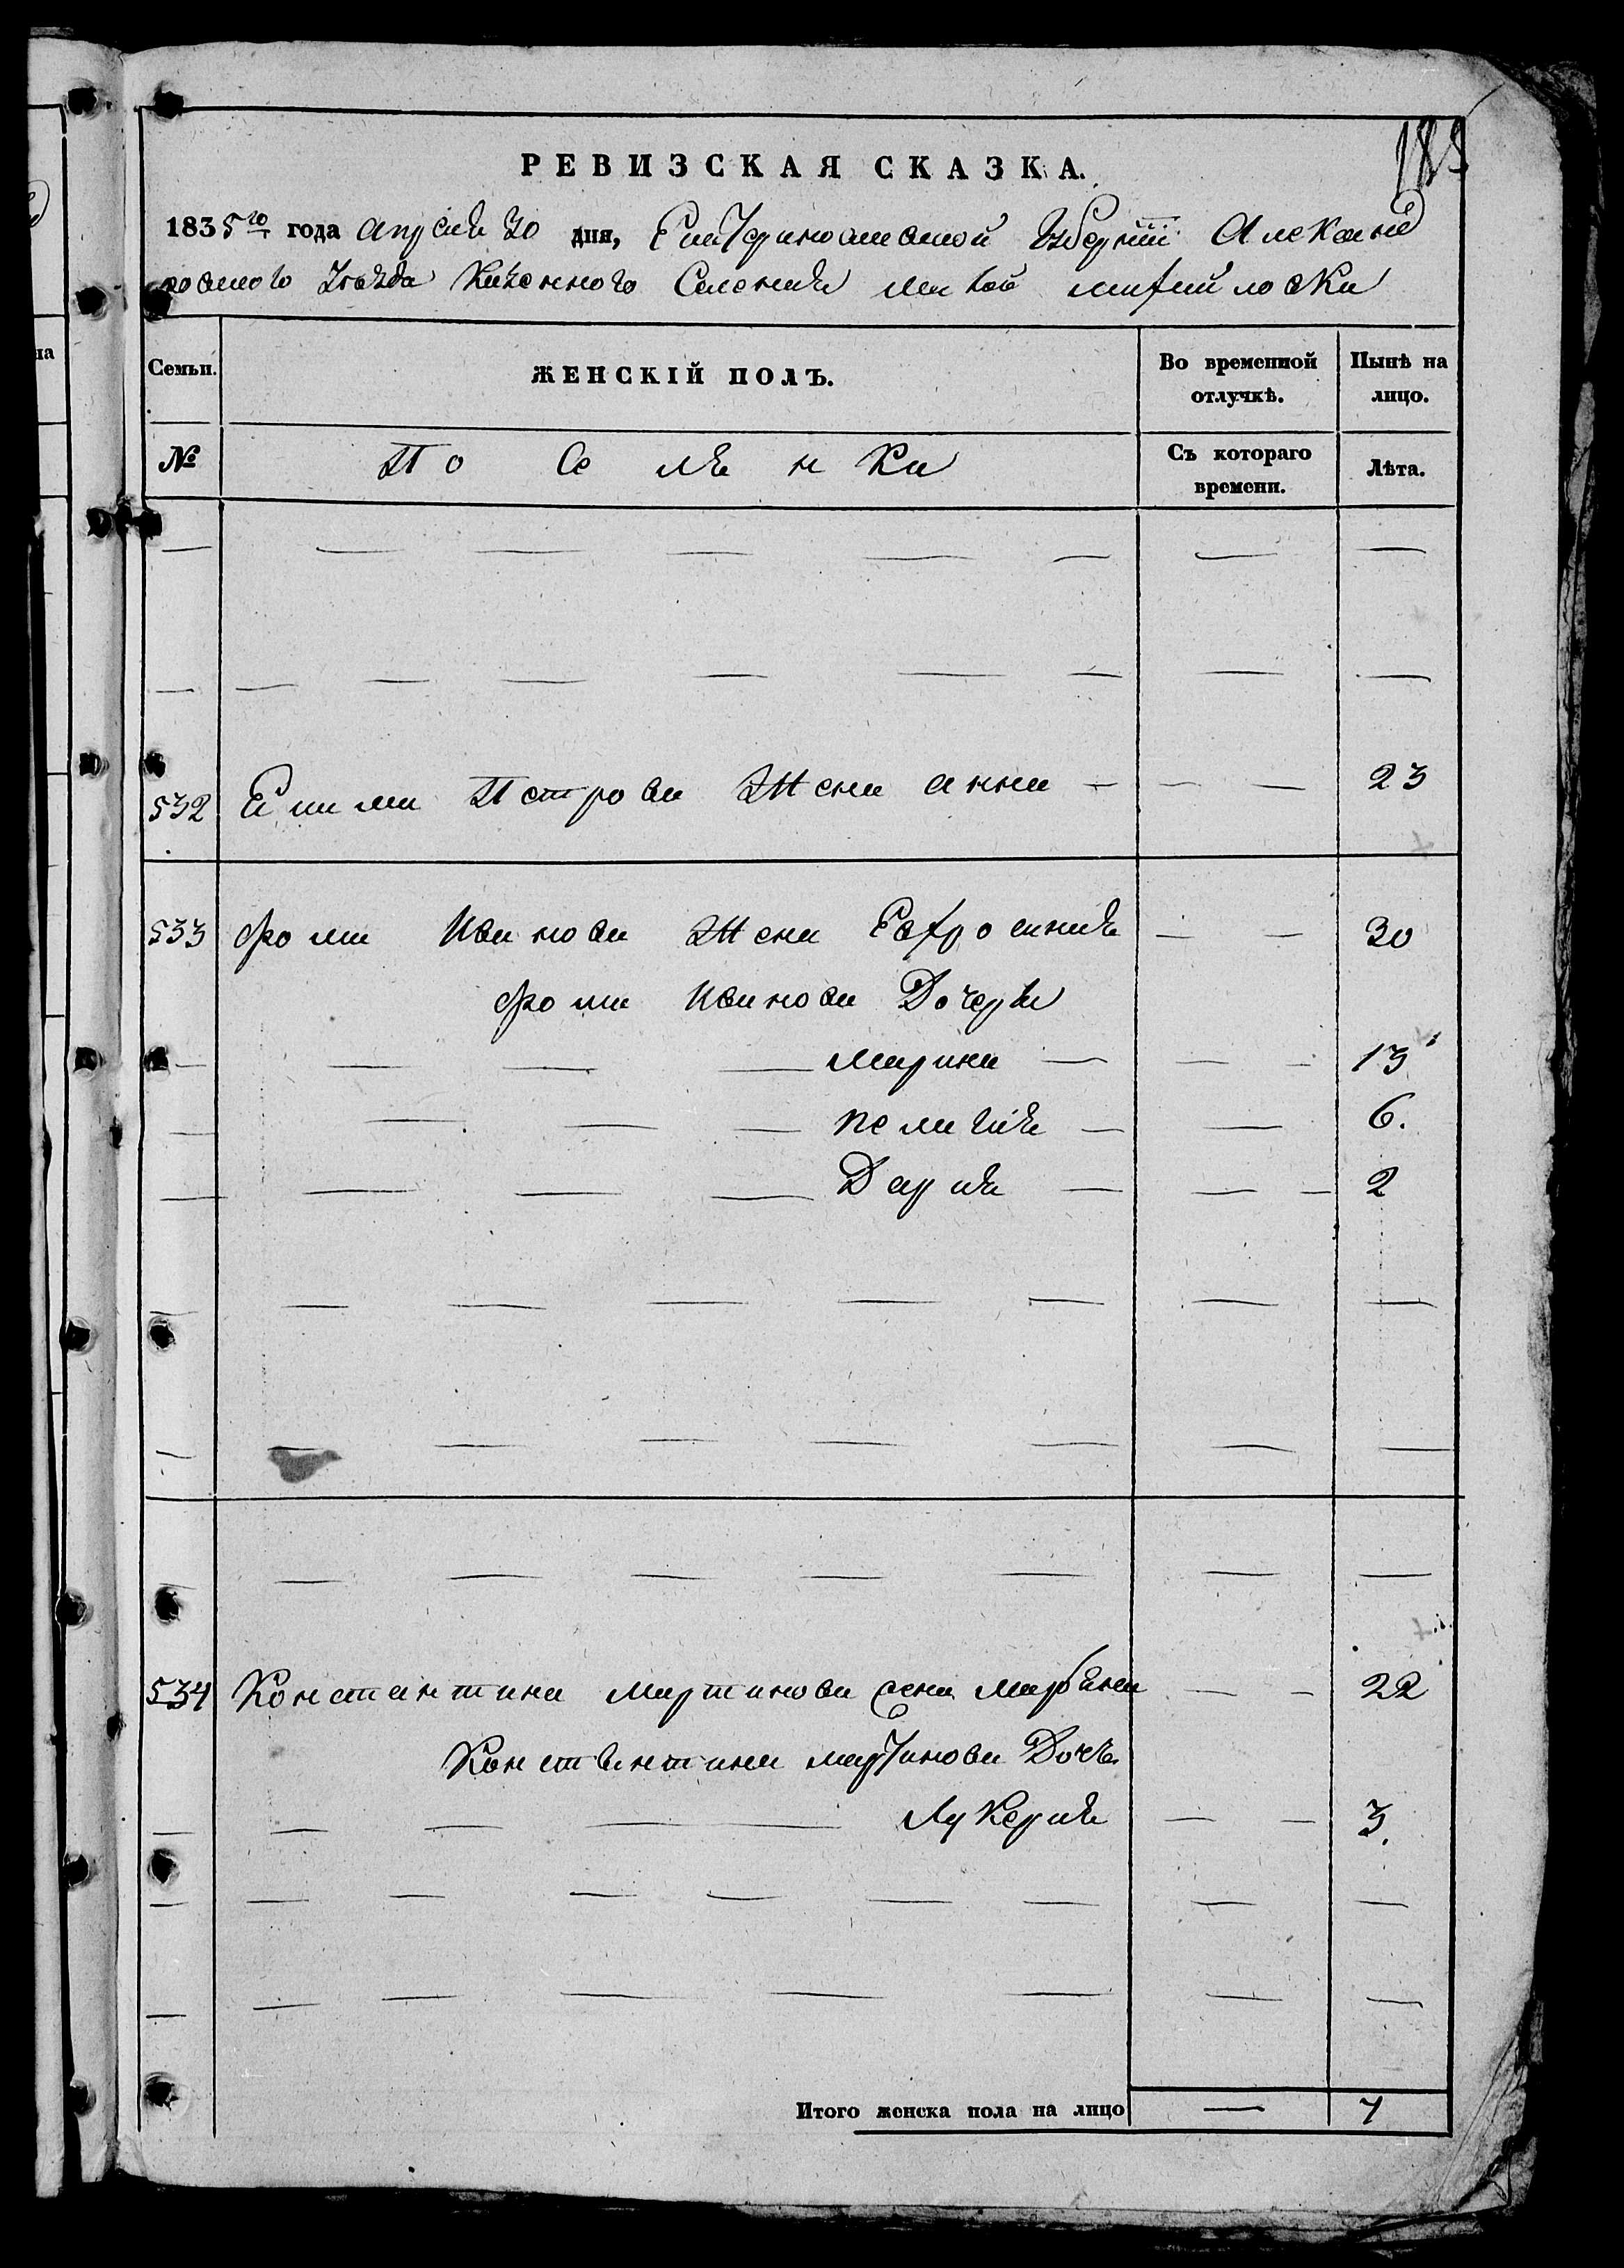 189
РЕВИЗСКАЯ СКАЗКА.
1835го года апреля 30 дня, Екатериновской Губернии Александ
ровского Уезда Казенного Селения малой михайловки
на
Семьи.
ЖЕНСКІЙ ПОЛЪ.
Во временной отлучкѣ.
Нынѣ на лицо.
№
По Се ля н Ки
Съ котораго времени.
Лѣта.
532 Екима Петрова Жена анна — — — 23
533 фома Иванова Жена Евфросиния — — 30
фомы Иванова Дочери
марина — — — 13
пелагия — — 6.
Дария — — — 2
534 Константина мартинова жена марьяна — — 22
Константина мартинова Дочь
Лукерия — — 3.
Итого женска пола на лицо — 7